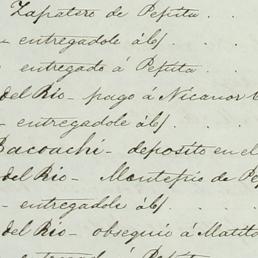 Zapatero de Pepita . .
entregadole á él . .
entregado á Pepita
del Rio - pago á Nicanor
- entregadole á él . . .
Bacoachi - deposito en el
del Rio - Montepio de Pe
- entregadole á él . . .
del Rio - obsequio á Matil
entregado á Pepita